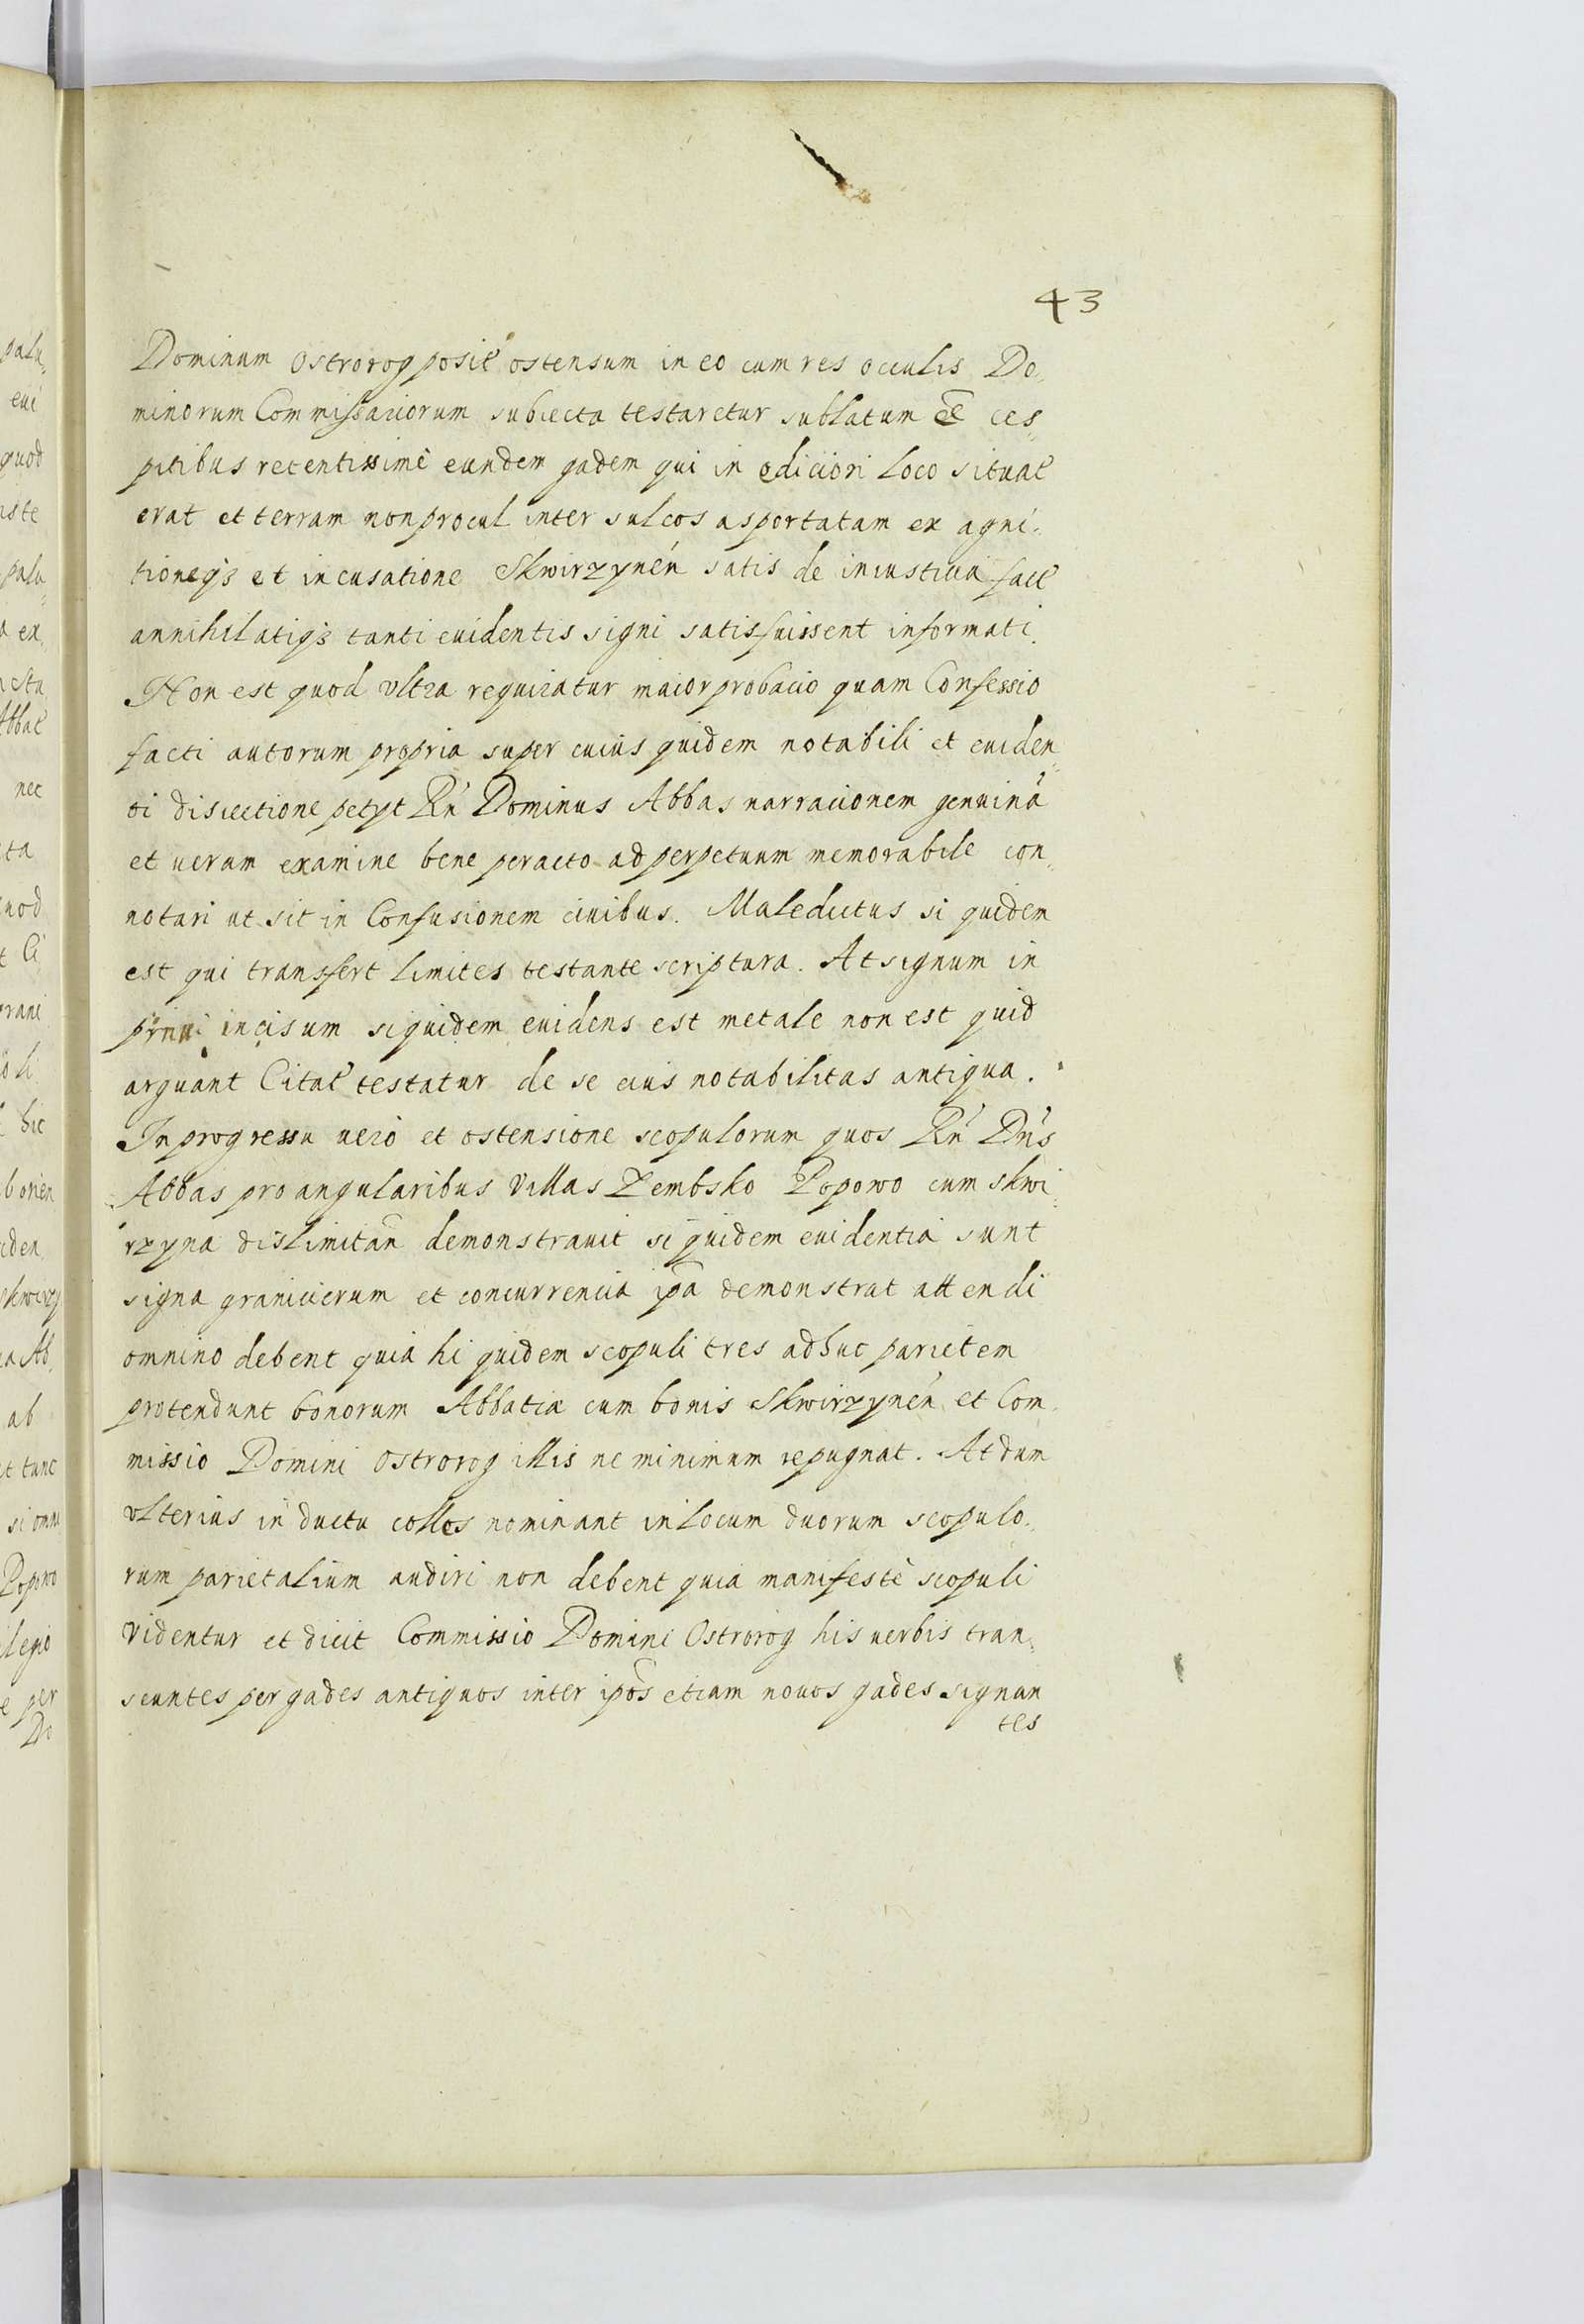 43
Dominum Ostrorog posit ostensum in eo cum res occulis Do„
minorum Commissariorum subiecta testaretur sublatum eē ces„
pitibus recentissimè eundem gadem qui in ediciori loco situat
erat et terram non procul inter sulcos asportatam ex agni„
tioneqз et incusatione Skwirzynén satis de iniustitia fact
annihilatiqз tanti euidentis signi satis fuissent informati.
Non est quod vltra requiratur maior probacio quam Confessio
facti autorum propria super cuius quidem notabili et euiden„
ti disiectione petyt Rń Dominus Abbas narracionem genuinā
et ueram examine bene peracto ad perpetuum memorabile con„
notari ut sit in Confusionem ciuibus. Maledictus si quidem
est qui transfert limites testante scriptura. At signum in
pinu incisum siquidem euidens est metale non est quid
arguant Citat testatur de se eius notabilitas antiqua.
In progressu uero et ostensione scopulorum quos Rń Dńs
Abbas pro angularibus Villas Zembsko Popowo cum Skwi„
rzyna dislimitan̄ demonstrauit siquidem euidentia sunt
signa granicierum et concurrencia ip̄a demonstrat attendi
omnino debent quia hi quidem scopuli tres adhuc parietem
protendunt bonorum Abbatiæ cum bonis Skwirzynén et Com„
missio Domini Ostrorog illis ne minimum repugnat. At dum
vlterius in ductu colles nominant in locum duorum scopulo„
rum parietalium audiri non debent quia manifestè scopuli
videntur et dicit Commissio Domini Ostrorog his uerbis tran„
seuntes per gades antiquos inter ip̄os etiam nouos gades signan
tes
palu„
eui
quod
iste
palu„
ex„
Abbat
nec
ta
quod
hic
orien
iden„
Skwirzy
Ab„
ab
et tunc
si omni
Popowo
ilegio
per
Do